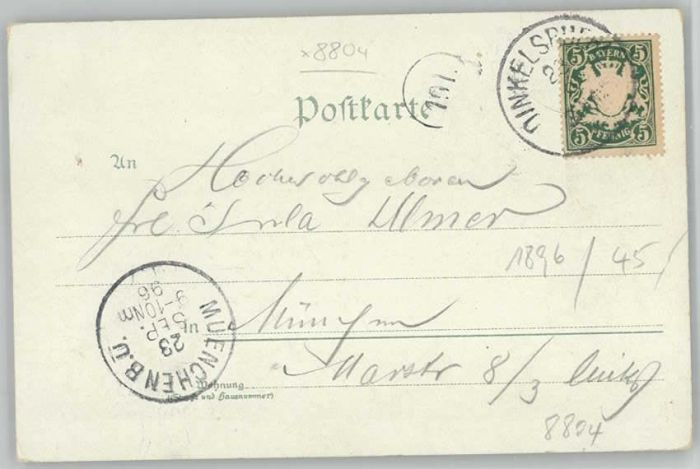 x8804
Postkarte
DINKELSBÜHL
5 BAYERN 5
5 PFENNIG 5
An
Hochwohlgeboren
Frl.
Ulmer
1896 / 45
in München
MUENCHEN B.Ü.
23
8-9
VORM
Marstr 8/3 links
Wohnung
(Straße und Hausnummer)
8804